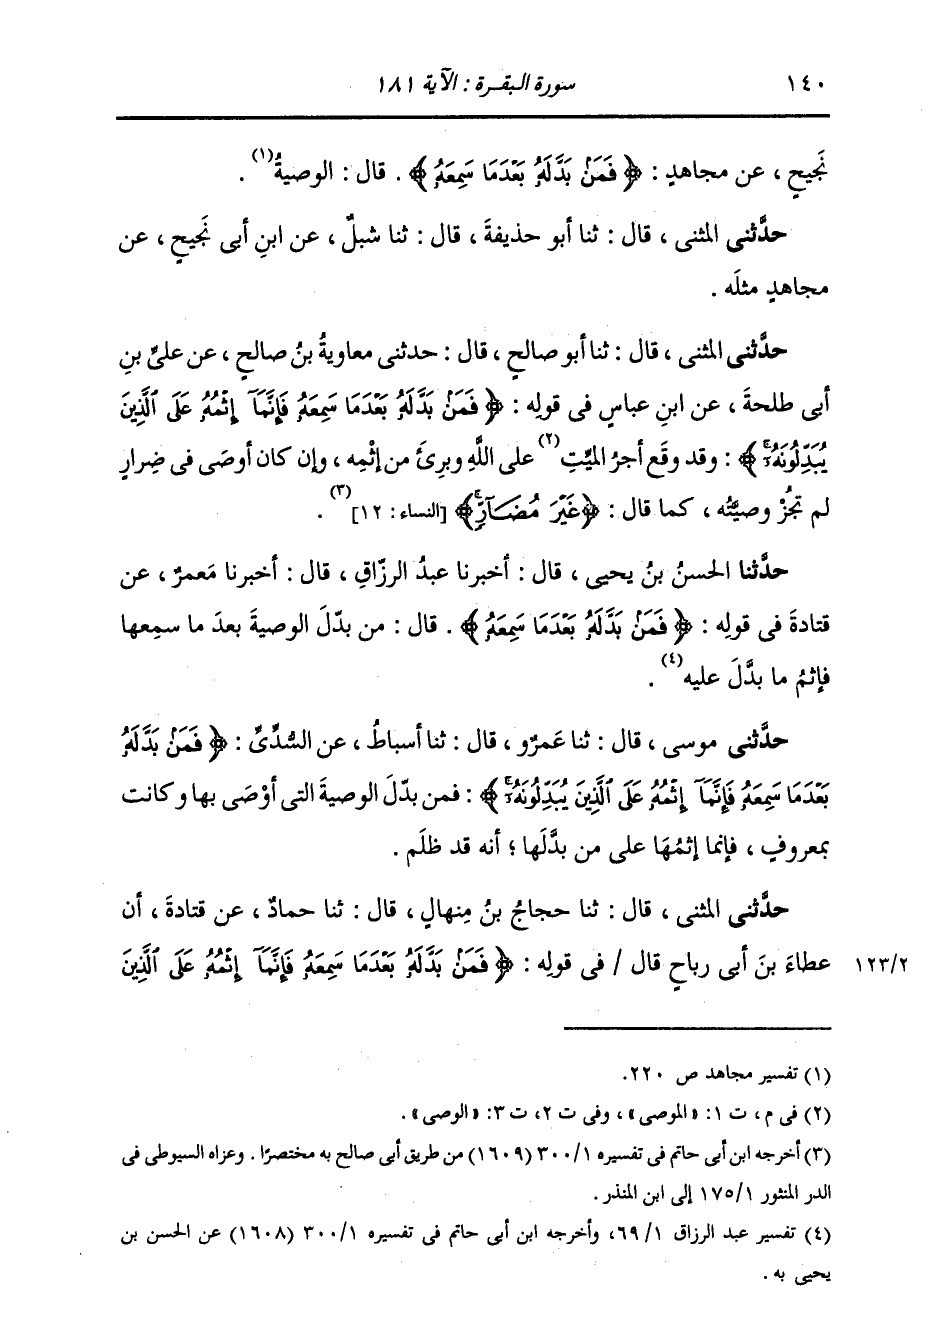 ١٤٠ سورة البقرة : الآية ١٨١
نَجيحٍ ، عن مجاهدٍ : ﴿ فَمَنۢ بَدَّلَهُۥ بَعْدَمَا سَمِعَهُۥ ﴾ . قال : الوصيةُ(١) .
حدَّثنى المثنى ، قال : ثنا أبو حذيفةَ ، قال : ثنا شبلٌ ، عن ابنِ أبى نَجيحٍ ، عن
مجاهدٍ مثلَه .
حدَّثنى المثنى ، قال : ثنا أبو صالحٍ ، قال : حدثنى معاويةُ بنُ صالحٍ ، عن علىِّ بنِ
أبى طلحةَ ، عن ابنِ عباسٍ فى قولِه : ﴿ فَمَنۢ بَدَّلَهُۥ بَعْدَمَا سَمِعَهُۥ فَإِنَّمَآ إِثْمُهُۥ عَلَى ٱلَّذِينَ
يُبَدِّلُونَهُۥٓۚ ﴾ : وقد وقَع أجرُ الميِّتِ(٢) على اللَّهِ وبرِئَ من إثْمِه ، وإن كان أوصَى فى ضِرارٍ
لم تجُزْ وصيتُّه ، كما قال : ﴿ غَيْرَ مُضَآرٍّۚ ﴾ [النساء : ١٢](٣) .
حدَّثنا الحسنُ بنُ يحيى ، قال : أخبرنا عبدُ الرزّاقِ ، قال : أخبرنا مَعمرٌ ، عن
قتادةَ فى قولِه : ﴿ فَمَنۢ بَدَّلَهُۥ بَعْدَمَا سَمِعَهُۥ ﴾ . قال : من بدّلَ الوصيةَ بعدَ ما سمِعها
فإثمُ ما بدَّلَ عليه(٤) .
حدَّثنى موسى ، قال : ثنا عَمرٌو ، قال : ثنا أسباطُ ، عن السُّدِّىِّ : ﴿ فَمَنۢ بَدَّلَهُۥ
بَعْدَمَا سَمِعَهُۥ فَإِنَّمَآ إِثْمُهُۥ عَلَى ٱلَّذِينَ يُبَدِّلُونَهُۥٓۚ ﴾ : فمن بدّلَ الوصيةَ التى أوْصَى بها وكانت
بمعروفٍ ، فإنما إثمُهَا على من بدَّلَها ؛ أنه قد ظلَم .
حدَّثنى المثنى ، قال : ثنا حجاجُ بنُ مِنهالٍ ، قال : ثنا حمادٌ ، عن قتادةَ ، أن
١٢٣/٢ عطاءَ بنَ أبى رباحٍ قال / فى قولِه : ﴿ فَمَنۢ بَدَّلَهُۥ بَعْدَمَا سَمِعَهُۥ فَإِنَّمَآ إِثْمُهُۥ عَلَى ٱلَّذِينَ
(١) تفسير مجاهد ص ٢٢٠.
(٢) فى م ، ت ١: «الموصى» ، وفى ت ٢، ت ٣: «الوصى» .
(٣) أخرجه ابن أبى حاتم فى تفسيره ٣٠٠/١ (١٦٠٩) من طريق أبى صالح به مختصرًا . وعزاه السيوطى فى
الدر المنثور ١٧٥/١ إلى ابن المنذر .
(٤) تفسير عبد الرزاق ٦٩/١، وأخرجه ابن أبى حاتم فى تفسيره ٣٠٠/١ (١٦٠٨) عن الحسن بن
يحيى به .